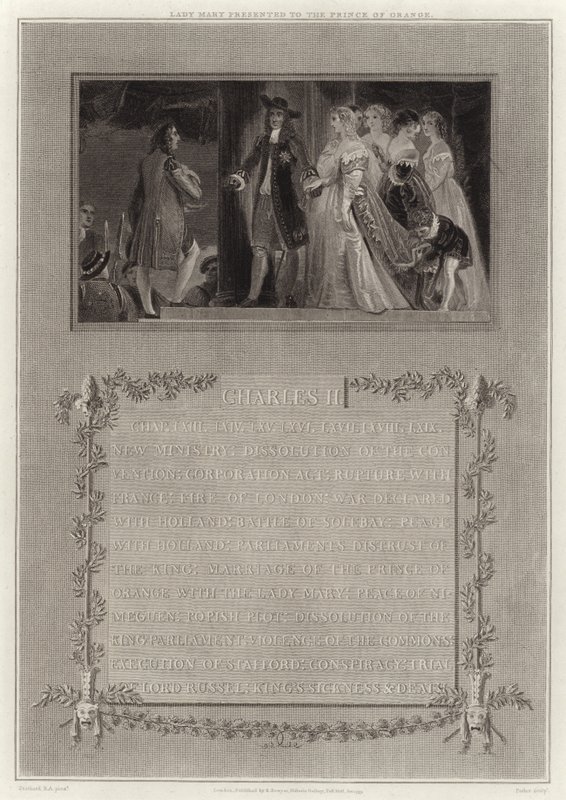 LADY MARY PRESENTED TO THE PRINCE OF ORANGE.
CHARLES II
CHAP. LXIII. LXIV. LXV. LXVI. LXVII. LXVIII. LXIX.
NEW MINISTRY: DISSOLUTION OF THE CON
VENTION: CORPORATION ACT: RUPTURE WITH
FRANCE: FIRE OF LONDON: WAR DECLARED
WITH HOLLAND: BATTLE OF SOLEBAY: PEACE
WITH HOLLAND: PARLIAMENTS DISTRUST OF
THE KING: MARRIAGE OF THE PRINCE OF
ORANGE WITH THE LADY MARY: PEACE OF NI-
MEGUEN: POPISH PLOT: DISSOLUTION OF THE
KING PARLIAMENT: VIOLENCE OF THE COMMONS:
EXECUTION OF STAFFORD: CONSPIRACY: TRIAL
OF LORD RUSSEL: KING'S SICKNESS & DEATH
Stothard R.A. pinxt.
London, Published by R. Bowyer, Historic Gallery, Pall Mall,
Parker sculpt.